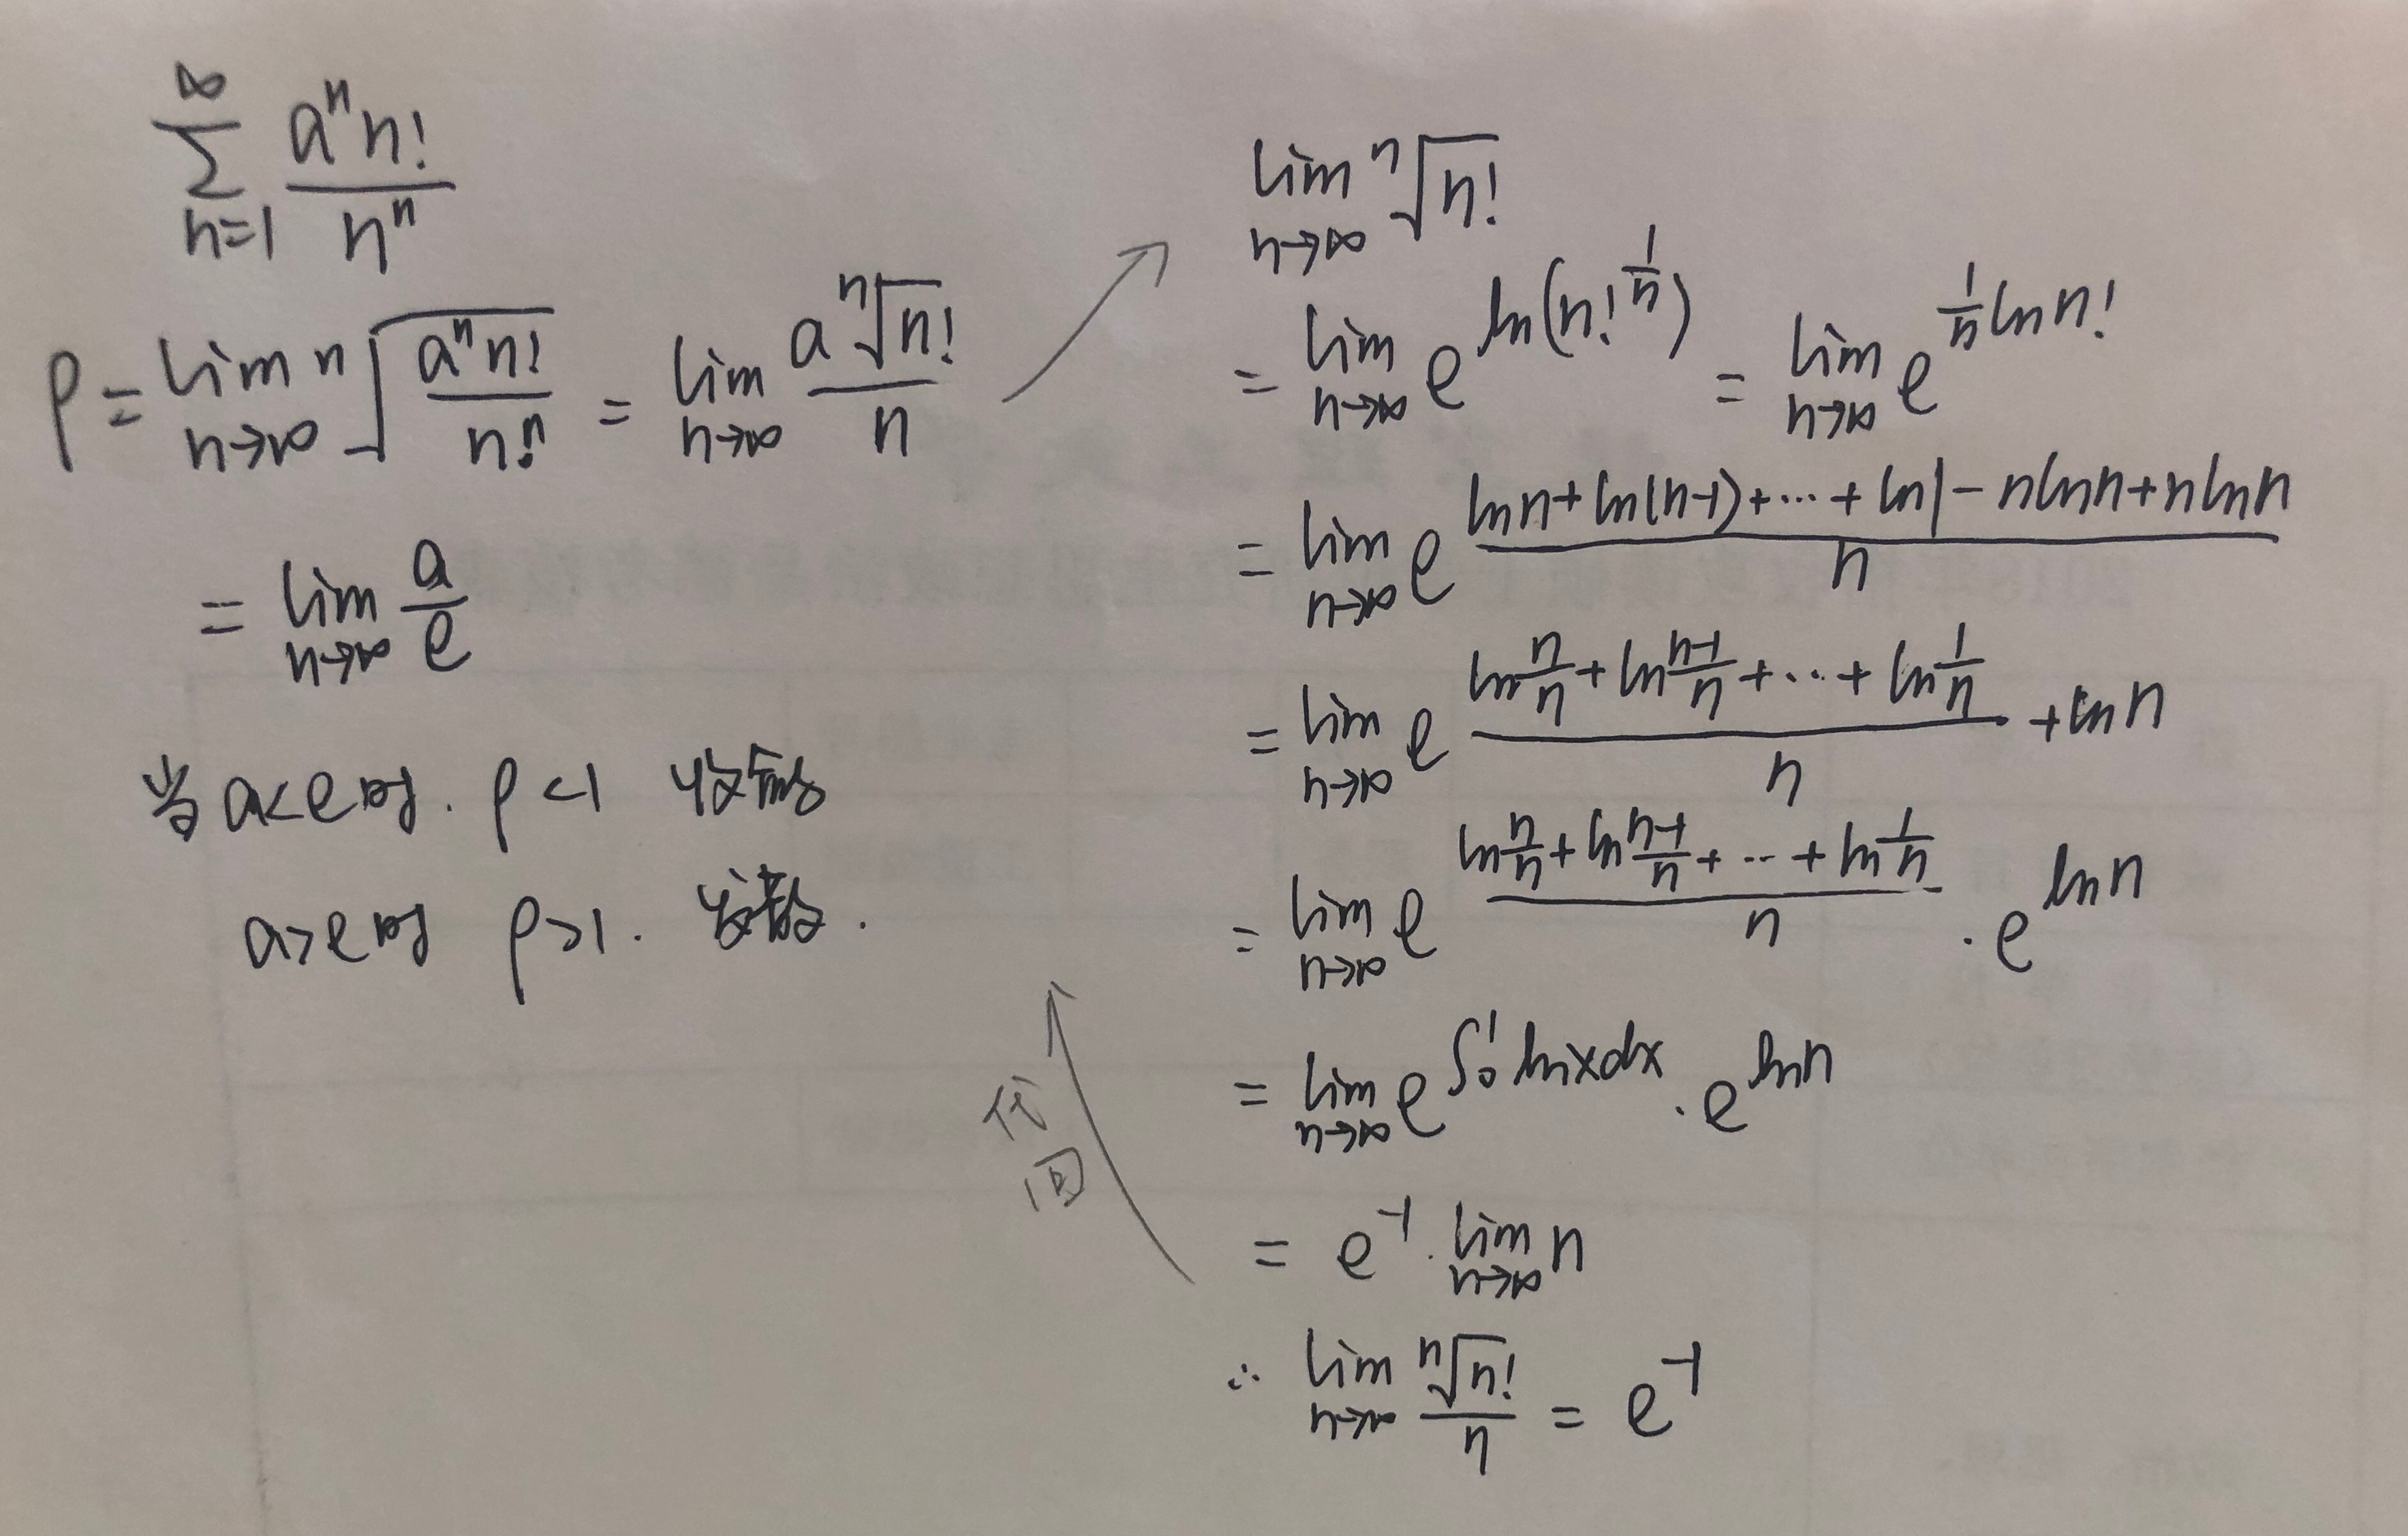 ∑_{n=1}^{∞} \frac{a^n n!}{n^n}
ρ = lim_{n→∞} \sqrt[n]{\frac{a^n n!}{n^n}} = lim_{n→∞} \frac{a \sqrt[n]{n!}}{n}
= lim_{n→∞} \frac{a}{e}
当 a<e时. ρ<1 收敛
a>e时 ρ>1. 发散.
lim_{n→∞} \sqrt[n]{n!}
= lim_{n→∞} e^{ln(n!^{\frac{1}{n}})} = lim_{n→∞} e^{\frac{1}{n} ln n!}
= lim_{n→∞} e^{\frac{ln n + ln(n-1) + ⋯ + ln 1 - n ln n + n ln n}{n}}
= lim_{n→∞} e^{\frac{ln\frac{n}{n} + ln\frac{n-1}{n} + ⋯ + ln\frac{1}{n}}{n} + ln n}
= lim_{n→∞} e^{\frac{ln\frac{n}{n} + ln\frac{n-1}{n} + ⋯ + ln\frac{1}{n}}{n}} · e^{ln n}
= lim_{n→∞} e^{∫_0^1 ln x dx} · e^{ln n}
= e^{-1} · lim_{n→∞} n
∴ lim_{n→∞} \frac{\sqrt[n]{n!}}{n} = e^{-1}
代
回